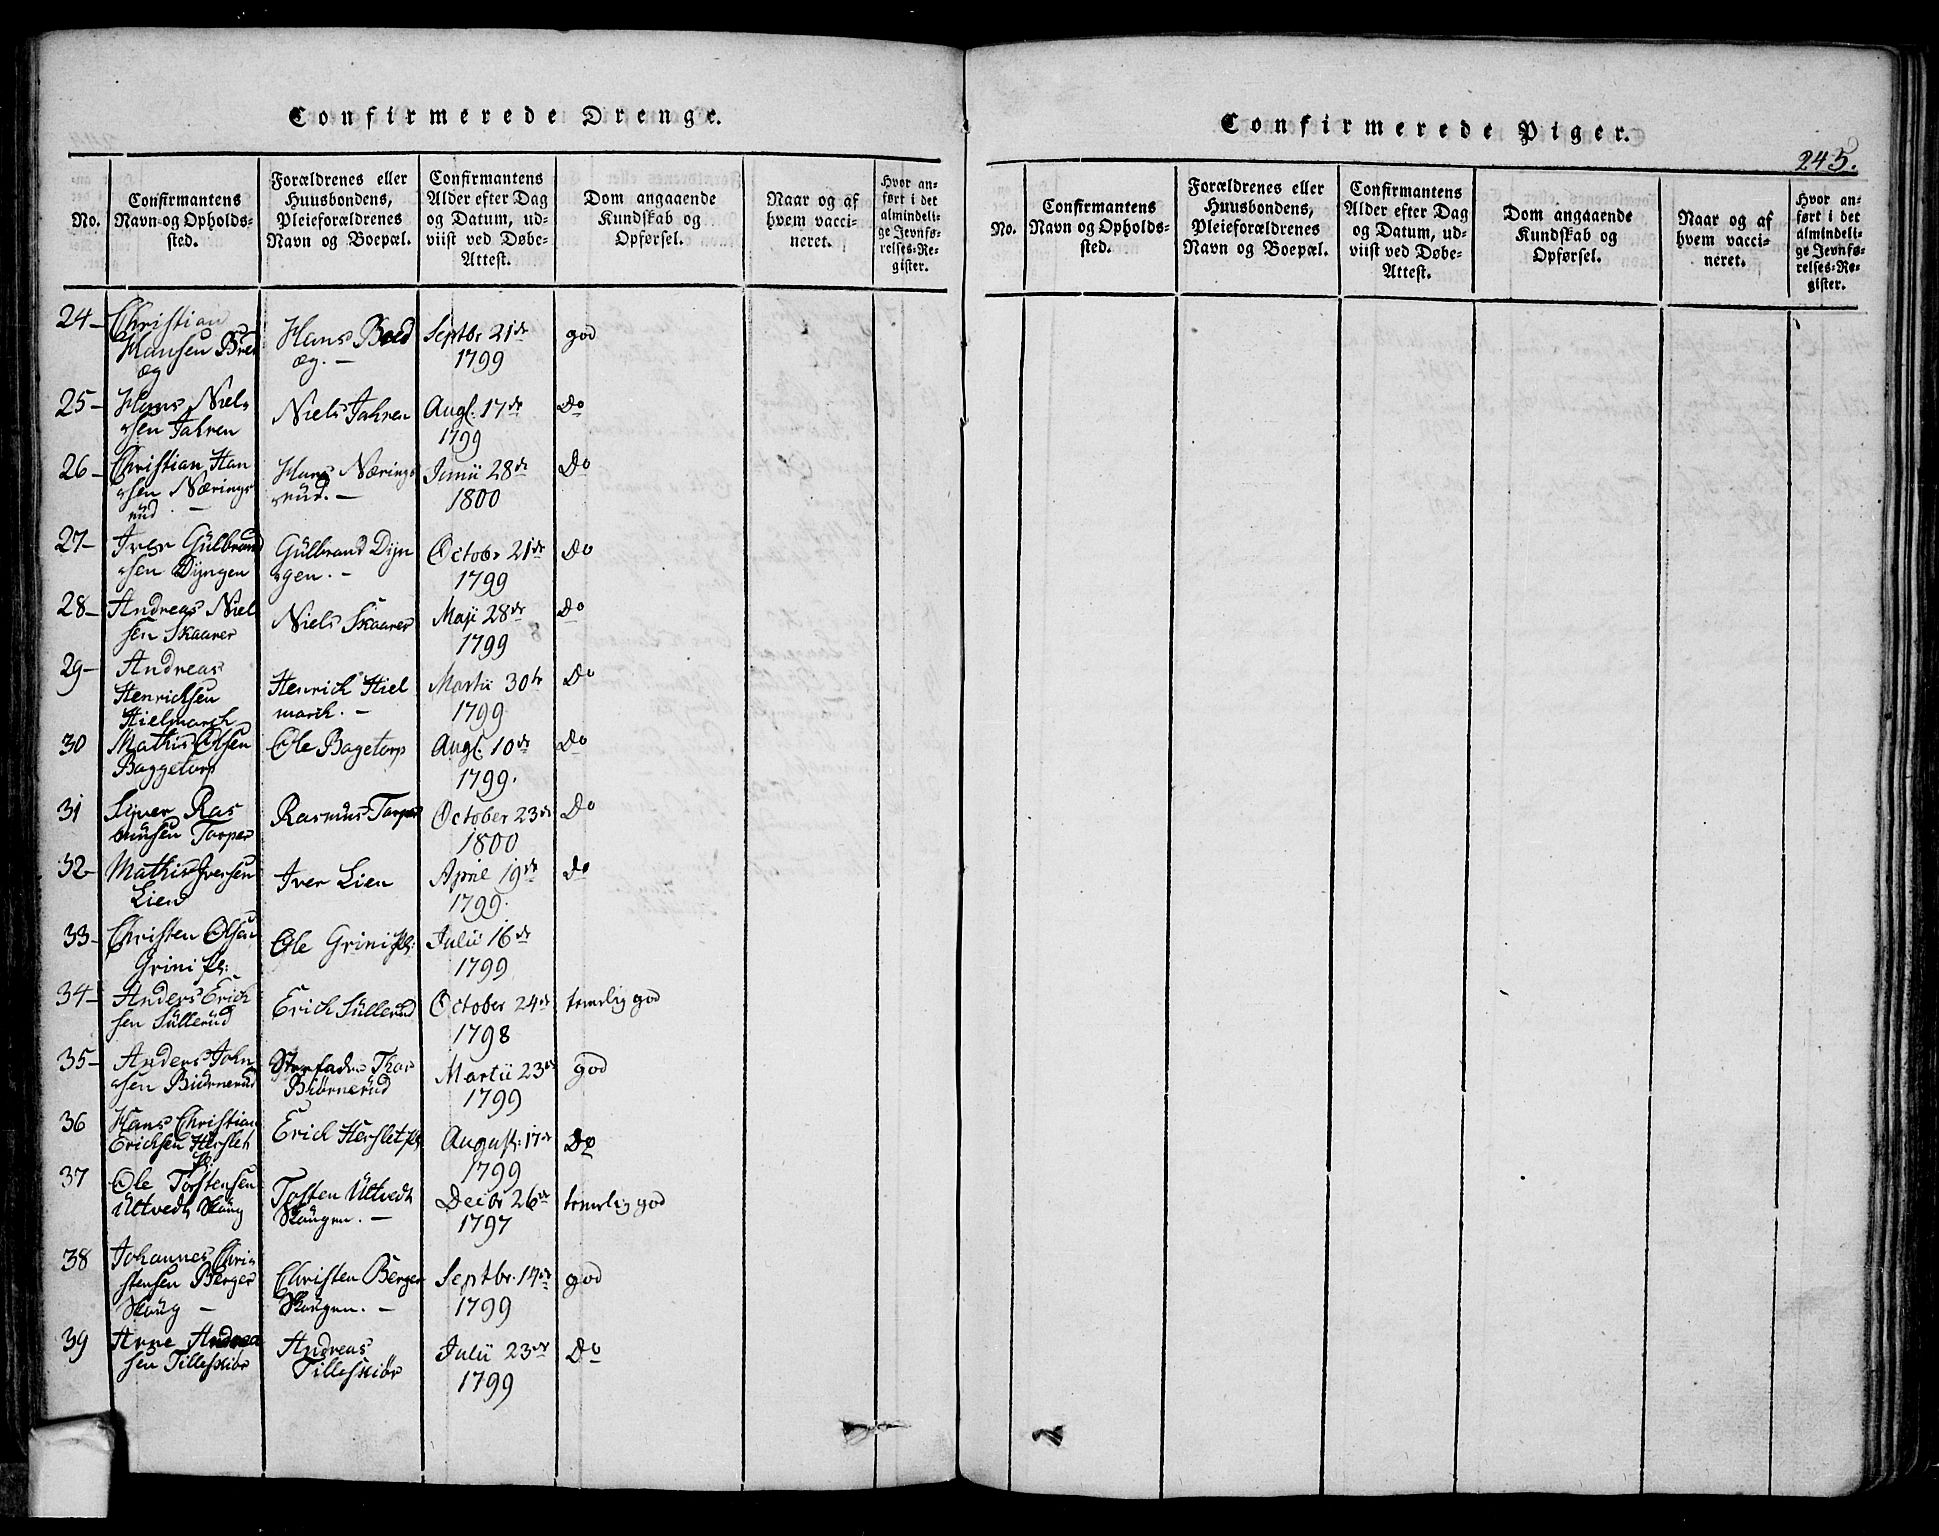 Confirmerede Drenge.
No.
Confirmantens
Navn og Opholds-
sted.
Forældrenes eller
Huusbondens,
Pleieforældrenes
Navn og Boepæl.
Confirmantens
Alder efter Dag
og Datum, ud-
viist ved Døbe-
Attest.
Dom angaaende
Kundskab og
Opførsel.
Naar og af
hvem vacci-
neret.
Hvor an-
ført i det
almindeli-
ge Jevnfø-
relses-Re-
gister.
24 Christian
Hansen
æg
Hans
æg. —
Septbr 21de
1799
god
25 Hans Niel-
sen Jahren
Niels Jahren
Augl. 17de
1799
Do
26 Christian Han
sen Nærings
rud —
Hans Nærings
rud. —
Junii 28de
1800
Do
27 Iver Gülbrand
sen Dÿngen
Gülbrand Dÿn
gen. —
Octobr 21de
1799
Do
28 Andreas Niel
sen Skaarer
Niels Skaarer
Maji 28de
1799
Do
29 Andreas
Henrichsen
Hielmarch
Henrich Hiel
march. —
Martii 30te
1799
Do
30 Mathis Olsen
Baggetorp
Ole Bagetorp
Augl. 10de
1799.
Do
31 Siver Ras
musen Torper
Rasmus Torper
October 23de
1800
Do
32 Mathis Iversen
Lien
Iver Lien
April 19de
1799.
Do
33 Christen Olsen
Grini
Ole Grini
Julii 16de
1799
34 Anders Erich
sen Süllerüd
Erich Süllerüd
October 24de
1798
temelig god
35 Anders John
sen Biörnerüd
Stenfader Thor
Biörnerüd
Martii 23de
1799
god
36 Hans Christian
Erichsen Herslet
Erich Herslet
August: 17de
1799
Do
37 Ole Torstensen
Ültvedt Skoüg
Tosten Ültvedt
Skougen. —
Decbr 26de
1797
temelig god
38 Johannes Chri
stensen Berger
Skoüg —
Christen Berger
Skougen. —
Septbr. 14de
1799
god
39 Arne Andrea
sen Tilleskiör
Andreas
Tilleskiör
Julii 23de
1799
Do
Confirmerede Piger.
245.
No.
Confirmantens
Navn og Opholds-
sted.
Forældrenes eller
Huusbondens,
Pleieforældrenes
Navn og Boepæl.
Confirmantens
Alder efter Dag
og Datum, ud-
viist ved Døbe-
Attest.
Dom angaaende
Kundskab og
Opførsel.
Naar og af
hvem vacci-
neret.
Hvor an-
ført i det
almindeli-
ge Jevnfø-
relses-Re-
gister.